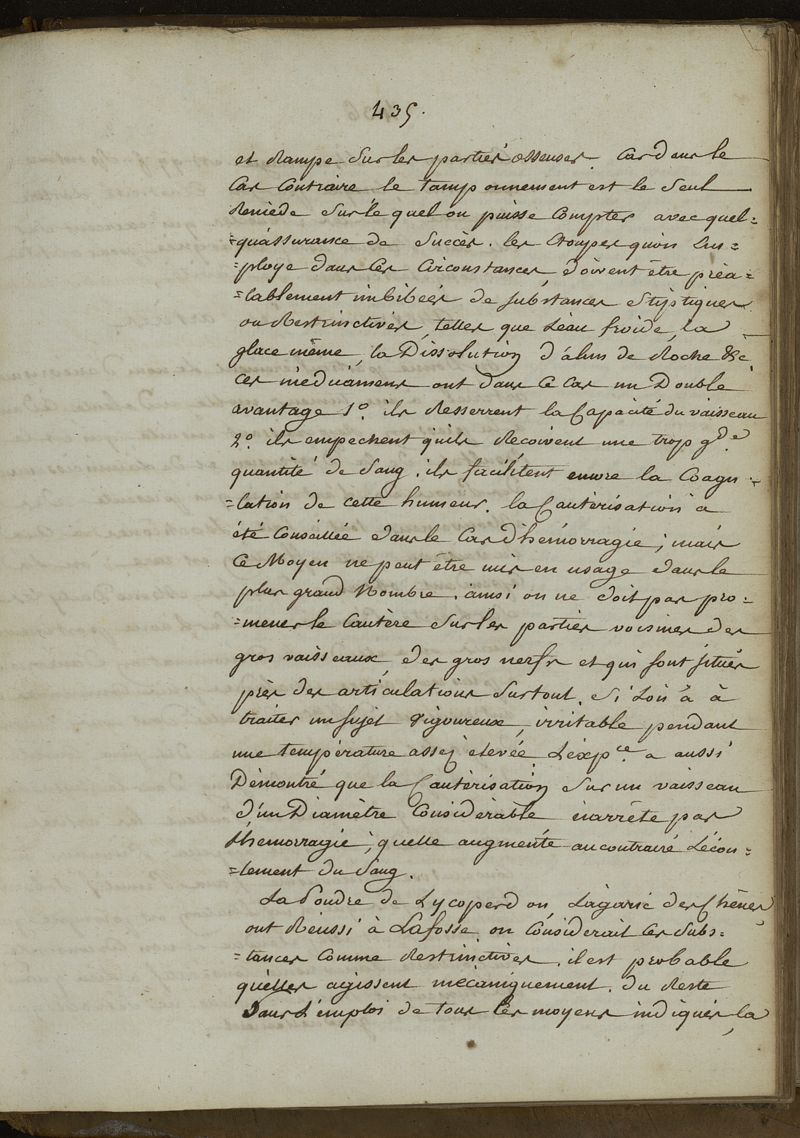 435.
et Rampe Sur les parties osseuses. Car dans le
Cas Contraire le tamponnement est le Seul
Remède Sur le quel on puisse Compter avec quel=
=qu'assurance de Succès. les Etoupes qu'on Em=
=ploye dans ces Circonstances, doivent être préa=
=lablement imbibées de substances Stiptiques
ou Restrinctives, telles que L'eau froide, la
glace même, la Dissolution d'alun de Roche &c
ces médicamens ont dans ce cas un Double
avantage 1º. ils Resserrent la Capacité du vaisseau
2º. ils empechent qu'ils Recoivent une trop gde
quantité de Sang. ils facilitent encore la Coagu=
=lation de cette humeur. la Cautérisation a
été Conseillée dans le Cas d'hémorragie; mais
Ce Moyen ne peut être mis en usage dans le
plus grand Nombre. ainsi on ne doit pas pro=
=mener le Cautère Sur les parties voisines des
gros vaisseaux, des gros nerfs et qui sont situés
près des articulations Surtout. Si Lon a à
traiter un Sujet Vigoureux, irritable pendant
une température assez elevée. L'expce a aussi
Démontré que la Cautérisation Sur un vaisseau
d'un Diamètre Considérable n'arrête pas
l'hemorragie, quelle augmente au contraire L'écou=
=lement du Sang.
La Poudre de Lycoperdon, L'agaric des Chênes,
ont Réussi à Lafosse. on Considerait ces Subs=
=tances Comme Restrinctives. il est probable
qu'elles agissent mécaniquement. du Reste
Dans L'emploi de tous les moyens indiqués, la